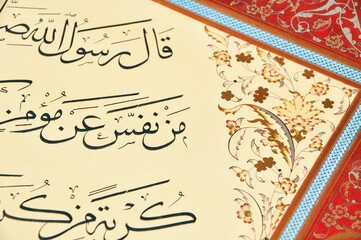 قَالَ رَسُولُ اللّٰه
مَنْ نَفَّسَ عَنْ مُؤْمِنٍ
كُرْبَةً مِنْ كُرَ